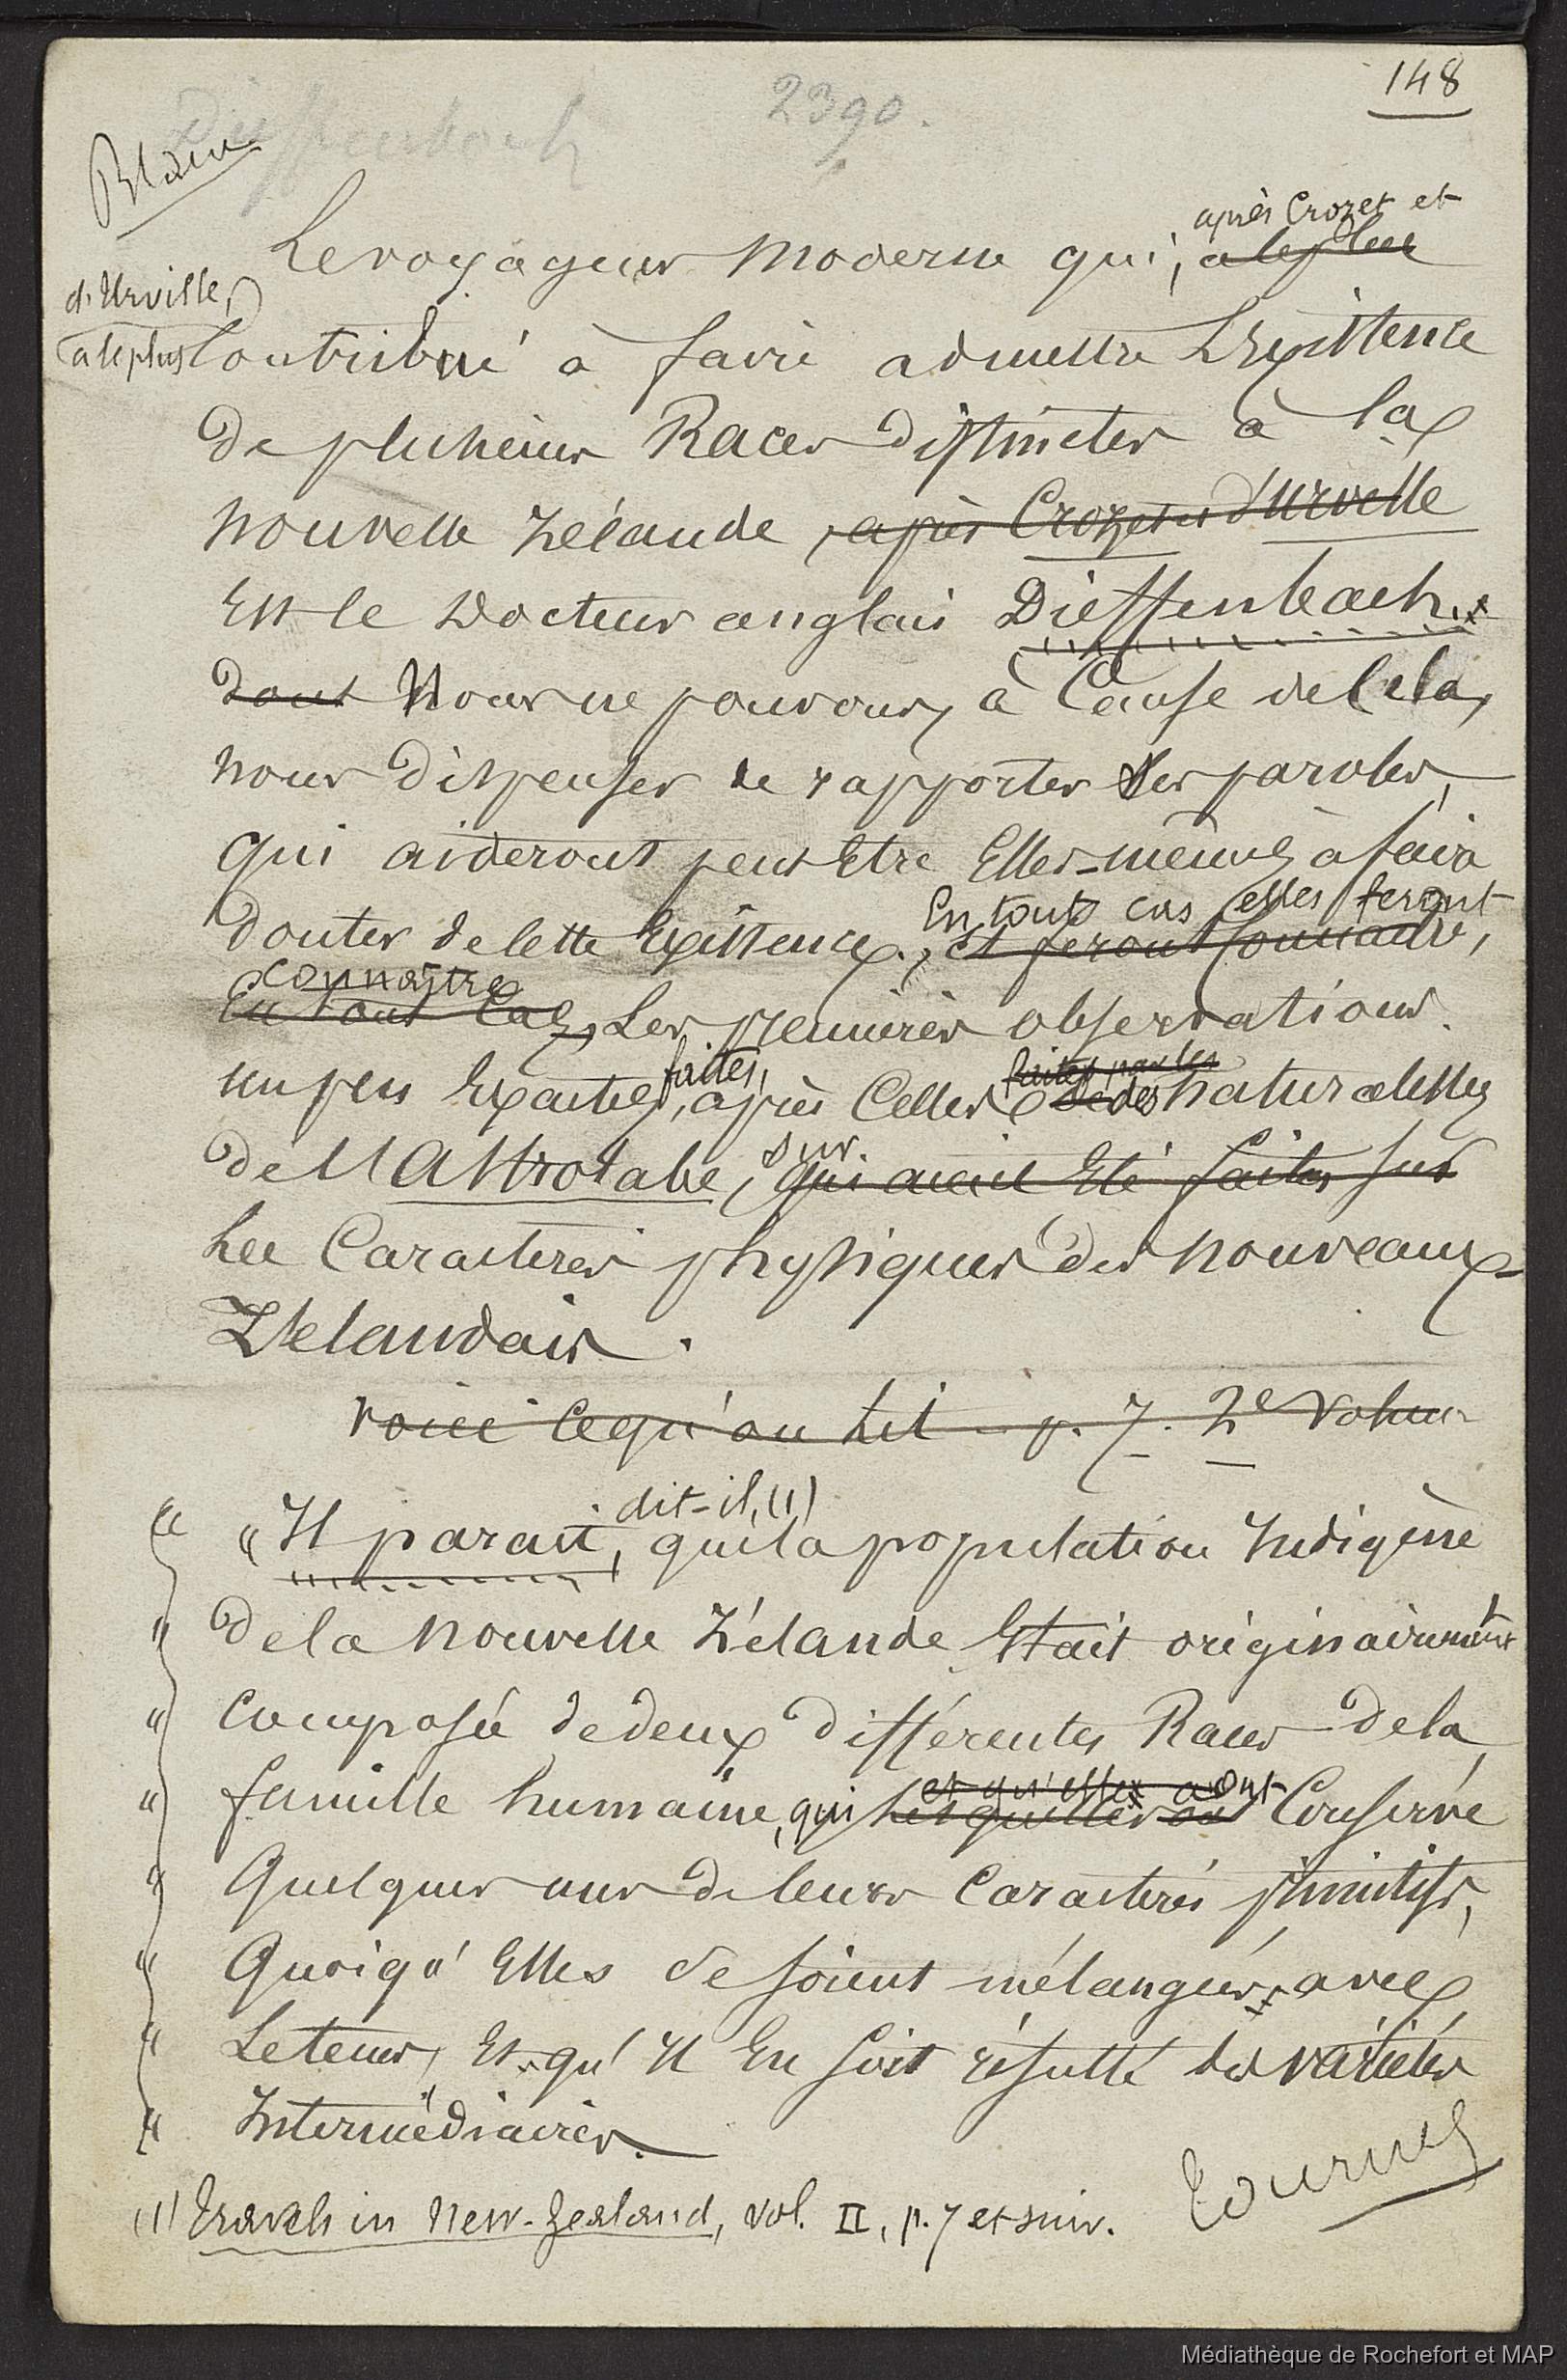 148
2390.
Dieffenbach
Blanc
après Crozet et
Le voyageur moderne qui, a le plus
d'Urville,
a le plus contribué à faire admettre l'existence
de plusieurs Races distinctes à la
nouvelle Zélande, après Crozet et d'Urville
est le Docteur anglais Dieffenbach.
dont Nous ne pouvons, à Cause de Cela,
nous dispenser de rapporter ses paroles,
qui aideront peut être Elles-mêmes à faire
En tout cas elles feront
douter de cette existence., et feront connaitre,
connaître
En tout Cas, Les premières observations
faites, faites par les
un peu exactes, après Celles des naturalistes
sur
de l'Astrolabe, qui aient été faites sur
Les Caracteres physiques des nouveaux-
Zélandais.
voici ce qu'on lit p. 7. 2e volume
dit-il, (1)
" "Il parait, que la population Indigène
" de la nouvelle Zélande était originairement
" composée de deux différentes Races de la
et qu'elles aont
" famille humaine, qui lesquelles ont Conservé
" Quelques uns de leurs Caracterès primitifs,
" Quoiqu'Elles se soient mélangées avec
" Le tems, Et qu'Il En soit résulté des variétés
" Intermédiaires.
Tournez
(1) Travels in New-Zealand, vol. II, p. 7 et suiv.
Médiathèque de Rochefort et MAP